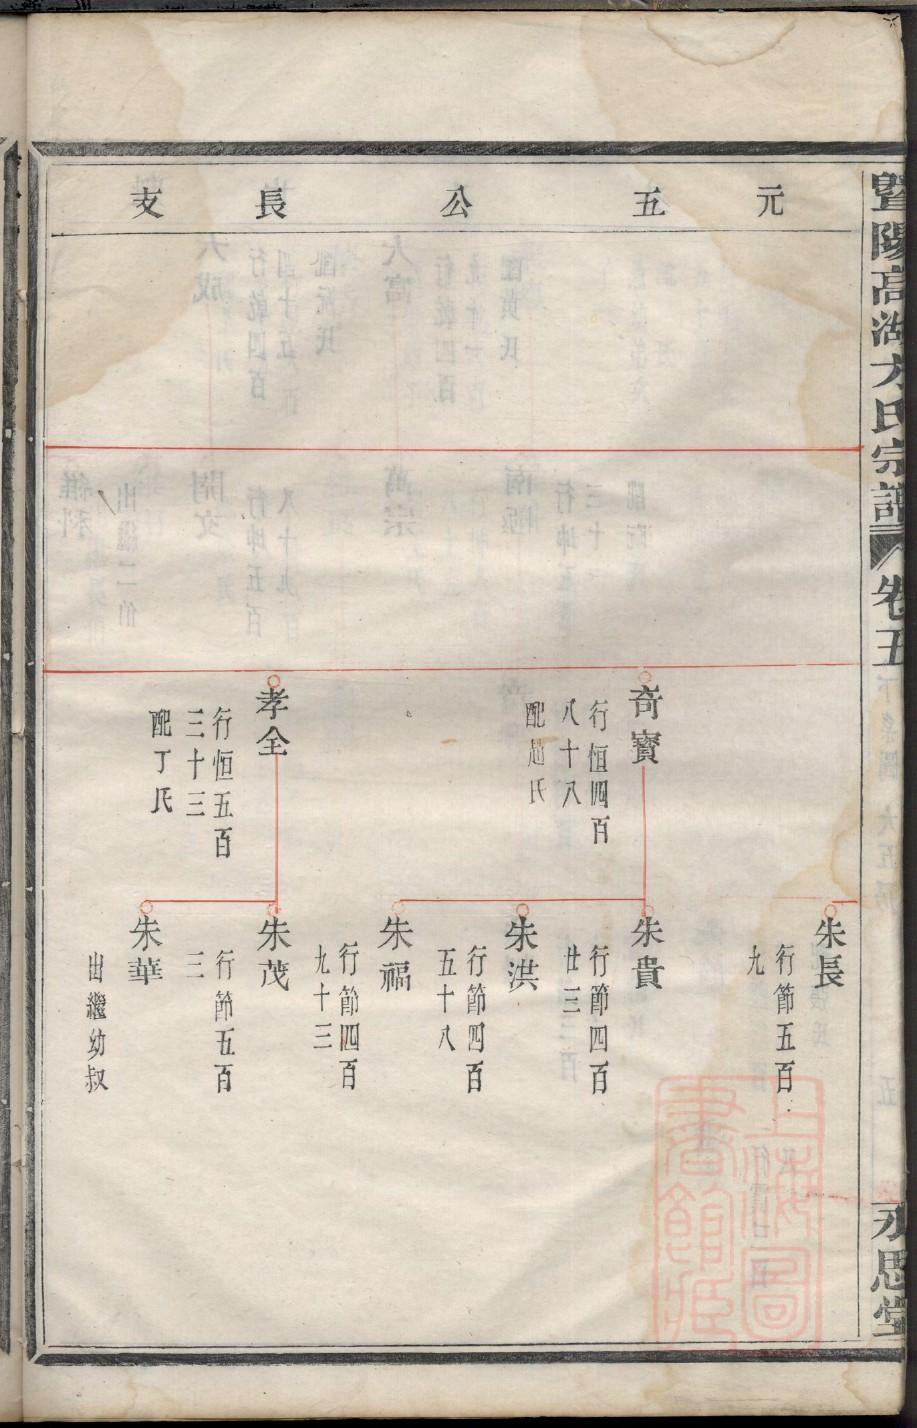 暨陽高湖方氏宗譜 卷五
永思堂
元五公長支
奇寶
行恒四百
八十八
配趙氏
孝全
行恒五百
三十三
配丁氏
朱長
行節五百
九
朱貴
行節四百
廿三
朱洪
行節四百
五十八
朱福
行節四百
九十三
朱茂
行節五百
二
朱華
出繼幼叔
上海圖書館藏